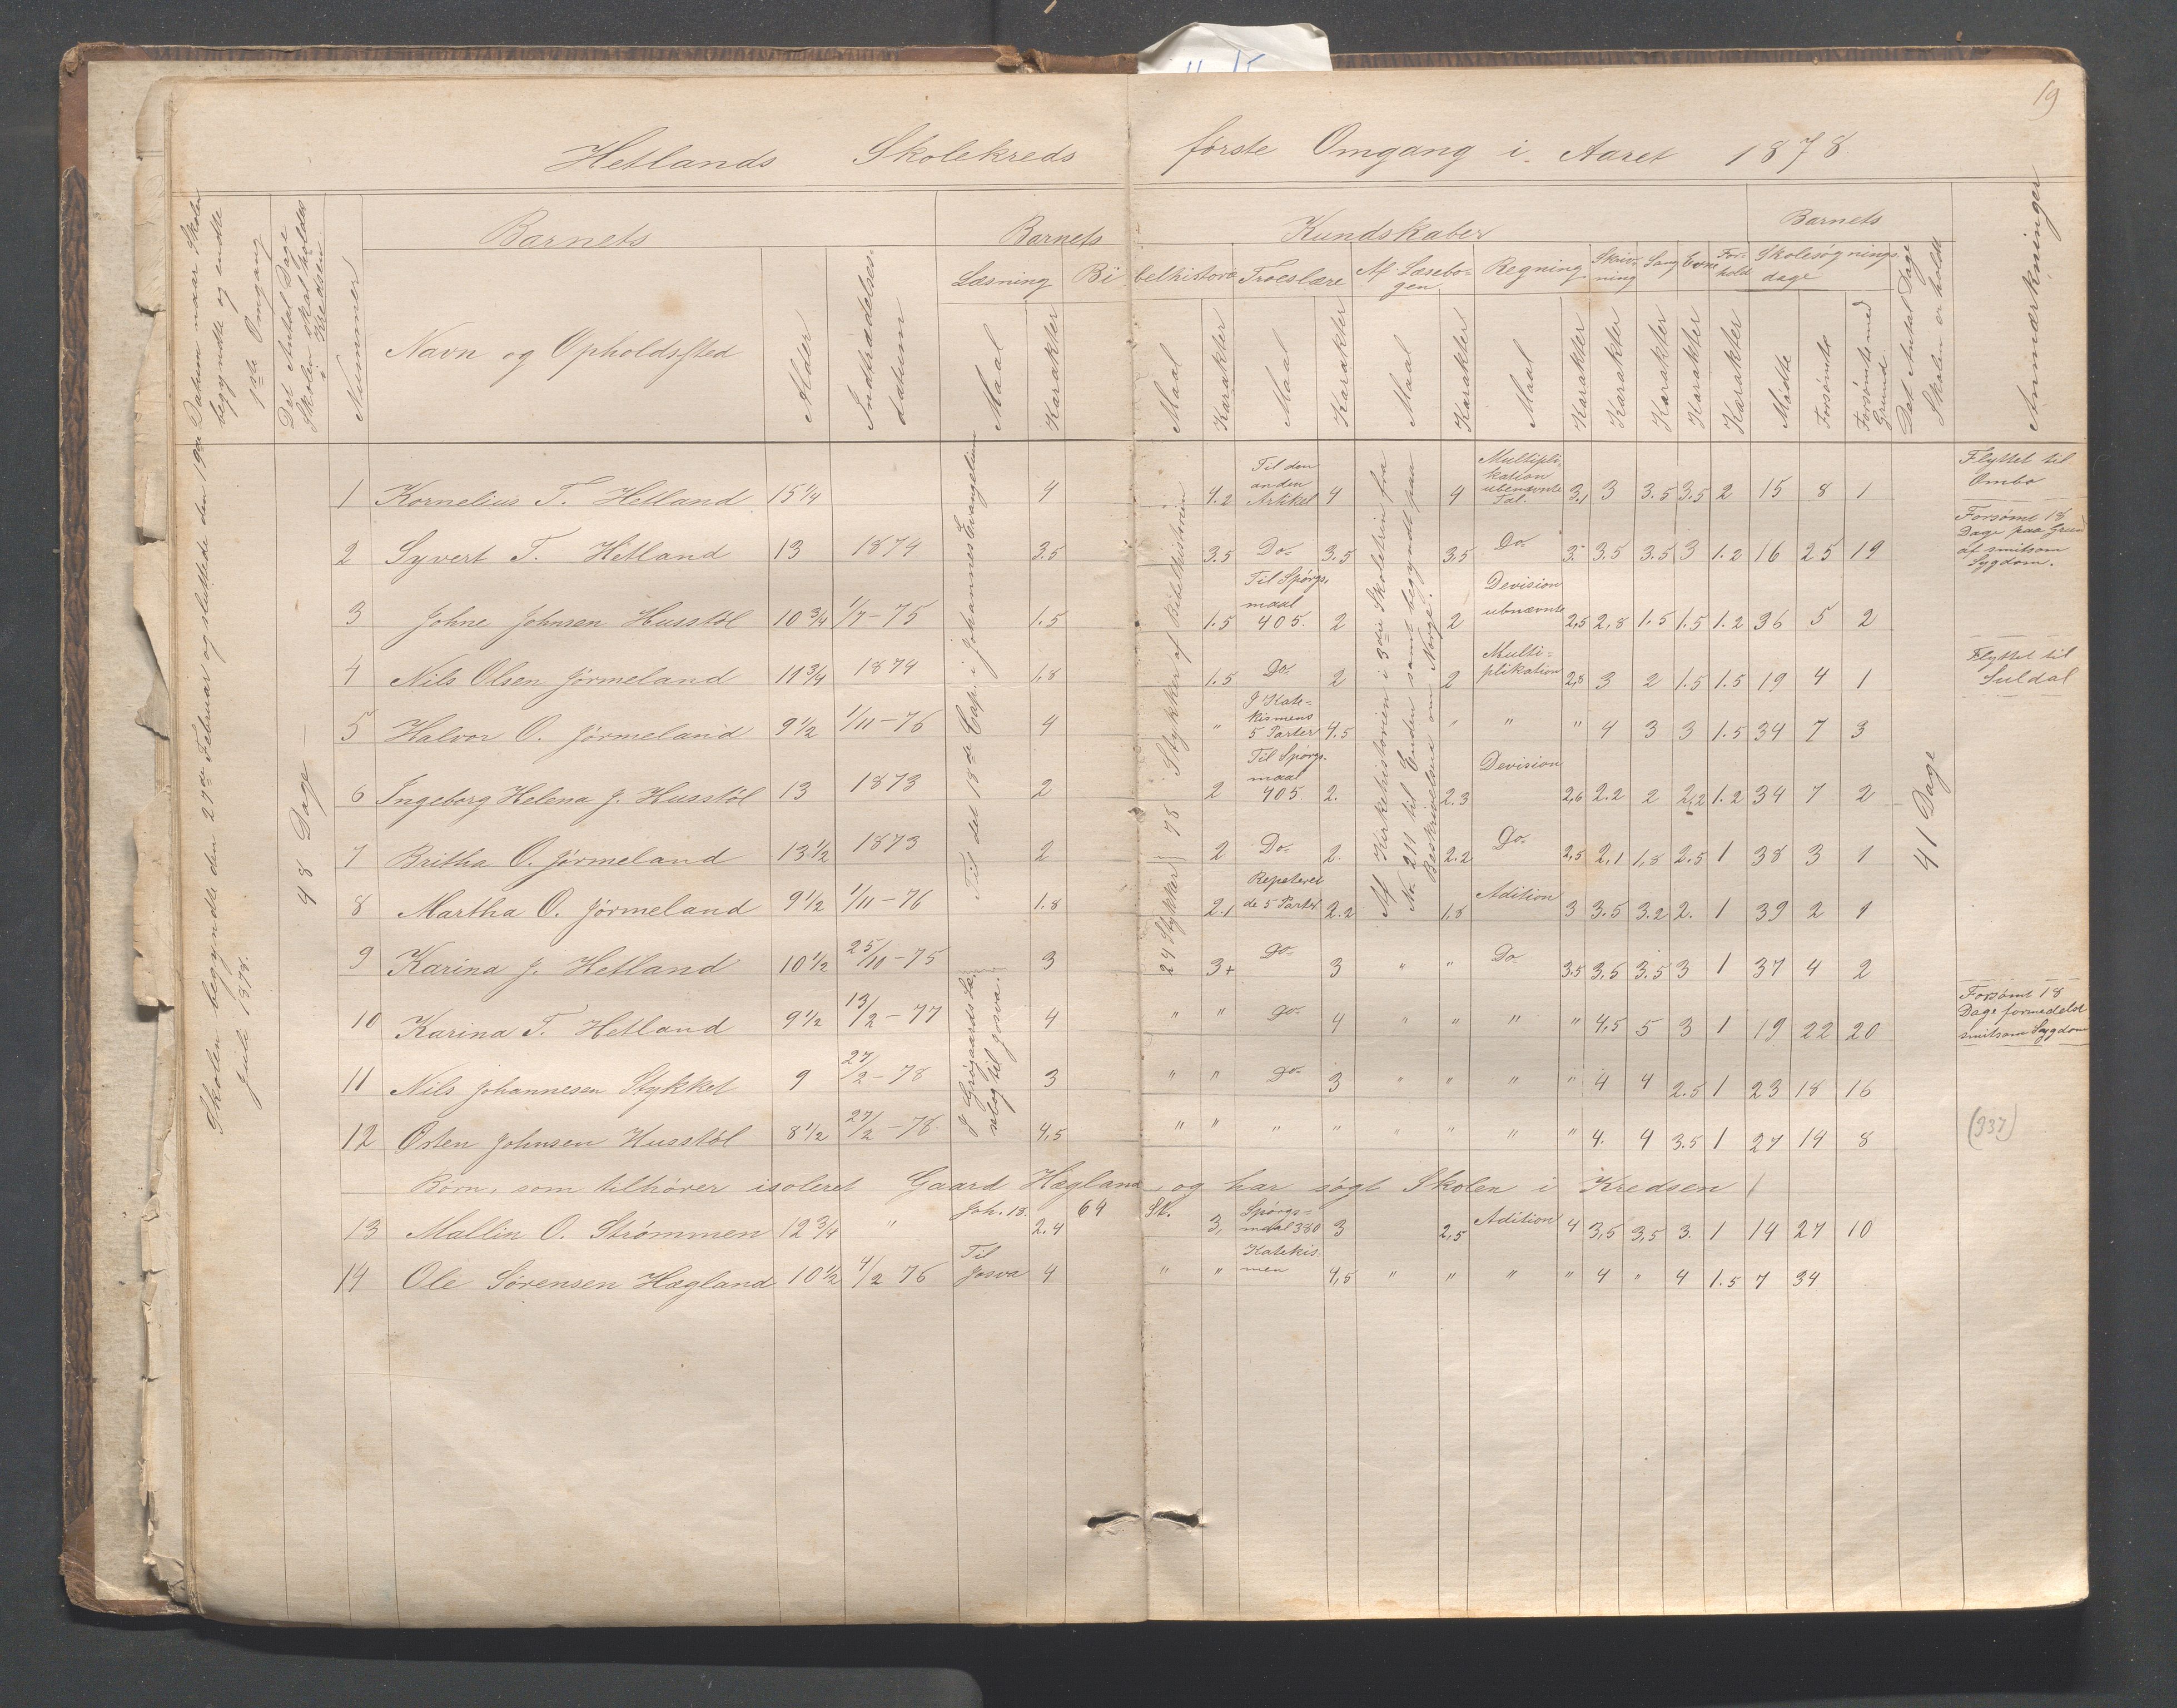 19
Hetlands Skolekreds første Omgang i Aaret 1878.
Datum naar Skolen
begyndte og endte
1ste Omgang
Det Antal Dage
Skolen skal holdes
i Kredsen.
Nummer
Barnets
Navn og Opholdssted
Alder
Indtrædelses-
datum
Barnets Kundskaber
Læsning
Maal
Karakter
Bibelhistorie
Maal
Karakter
Troeslære
Maal
Karakter
Af Læsebo-
gen
Maal
Karakter
Regning
Maal
Karakter
Skriv-
ning
Karakter
Sang
Karakter
Evne
Karakter
For-
hold
Karakter
Barnets
Skolesøgnings-
dage
Mødte
Forsømte
Forsømte med
Grund
Det Antal Dage
Skolen er holdt
Anmærkninger
Skolen begyndte den 27de Februar og sluttede den 19de
Juli 1878.
48 Dage
Til det 18de Cap. i Johannes Evangelium
I Grøgaards Læ-
sebog til Josva.
78 Stykker af Bibelhistorien
24 Stykker
Af Kirkehistorien i 3die Skoletrin fra
No. 211 til Enden samt begyndt paa
Beskrivelsen om Norge.
41 Dage
1 Kornelius T. Hetland 15 1/4 4 4.2 Til den anden Artikel 4 4 Multipli-kation ubenævnte Tal. 3.1 3 3.5 3.5 2 15 8 1 Flyttet til Ombo
2 Syvert T. Hetland 13 1874 3.5 3.5 Do 3.5 3,5 Do 3 3.5 3.5 3 1.2 16 25 19 Forsømt 18 Dage paa Grun af smitsom Sygdom.
3 Johne Johnsen Husstøl 10 3/4 1/7-75 1.5 1.5 Til Spørgs-maal 405. 2 2 Devision ubnævnte 2,5 2,8 1.5 1.5 1.2 36 5 2
4 Nils Olsen Jørmeland 11 3/4 1874 1.8 1.5 Do 2 2 Multi-plikation 2,8 3 2 1.5 1.5 19 4 1 Flyttet til Suldal
5 Halvor O. Jørmeland 9 1/2 1/11-76 4 " I Kate-kismens 5 Parter 4.5 " " " 4 3 3 1.5 34 7 3
6 Ingeborg Helena J. Husstøl 13 1873 2 2 Til Spørgs-maal 405. 2. 2.3 Devision 2,6 2.2 2 2,2 1.2 34 7 2
7 Britha O. Jørmeland 13 1/2 1873 2 2 Do 2. 2.2 Do 2,5 2,1 1,8 2.5 1 38 3 1
8 Martha O. Jørmeland 9 1/2 1/11-76 1.8 2.1 Repeteret de 5 Parter 2.2 1.8 Adition 3 3.5 3.2 2. 1 39 2 1
9 Karina J. Hetland 10 1/2 25/10-75 3 3+ Do 3 " " Do 3.5 3,5 3.5 3 1 37 4 2
10 Karina T. Hetland 9 1/2 13/2-77 4 " " Do 4 " " " " 4,5 5 3 1 19 22 20 Forsømt 18 Dage formedelst smitsom Sygdom
11 Nils Johannesen Stykket 9 27/2-78 3 " " Do 3 " " " " 4 4 2.5 1 23 18 16
12 Osten Johnsen Husstøl 8 1/2 27/2-78 4,5 " " " " " " " " 4. 4 3.5 1 27 14 8 (337)
Børn, som tilhører isoleret Gaard Hægland, og har søgt Skolen i Kredsen
13 Mallin O. Strømmen 12 3/4 " Joh. 18. 2.4 64 St. 3, Spørgs-maal 380 3 2,5 Adition 4 3,5 3,5 3. 1 14 27 10
14 Ole Sørensen Hægland 10 1/2 4/2 76 Til Josva 4 " " Katekis-men 4,5 " " " " 4 " 4 1.5 7 34